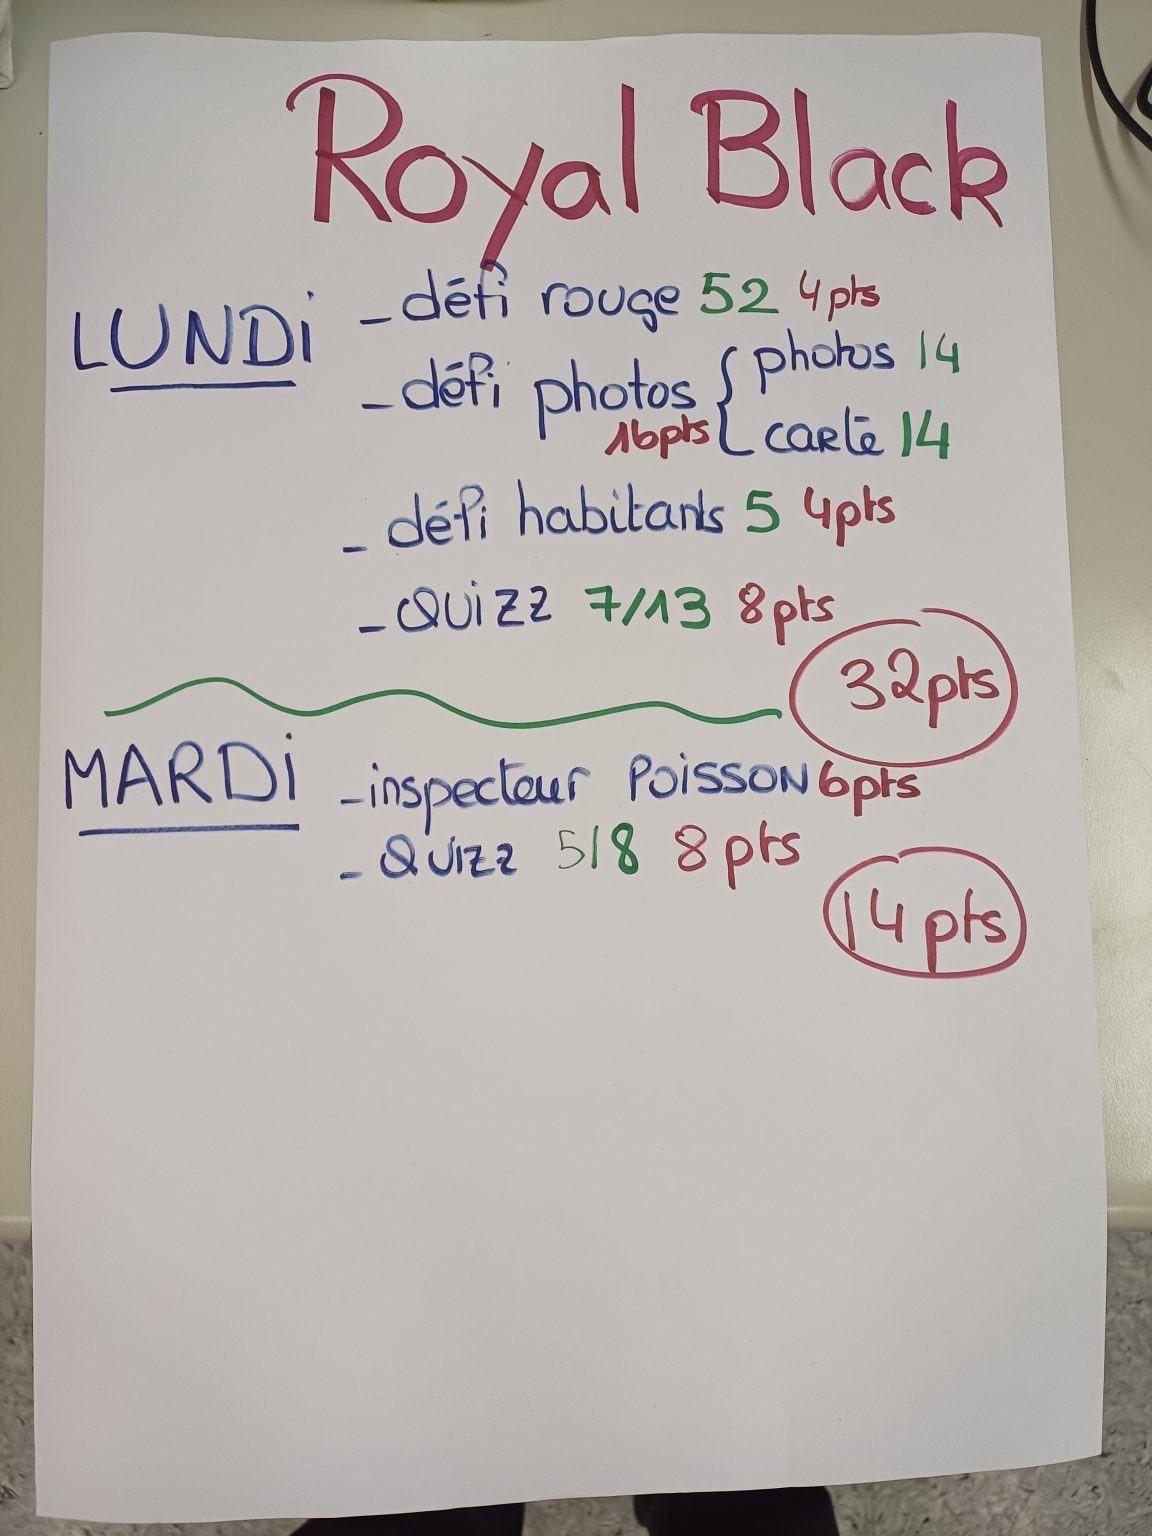 Royal Black
LUNDi
_ défi rouge 52 4pts
_ défi photos { photos 14
16pts carte 14
_ défi habitants 5 4pts
_ QUiZZ 7/13 8pts
32pts
MARDi
_ inspecteur POiSSON 6pts
_ QUiZZ 5/8 8pts
14 pts